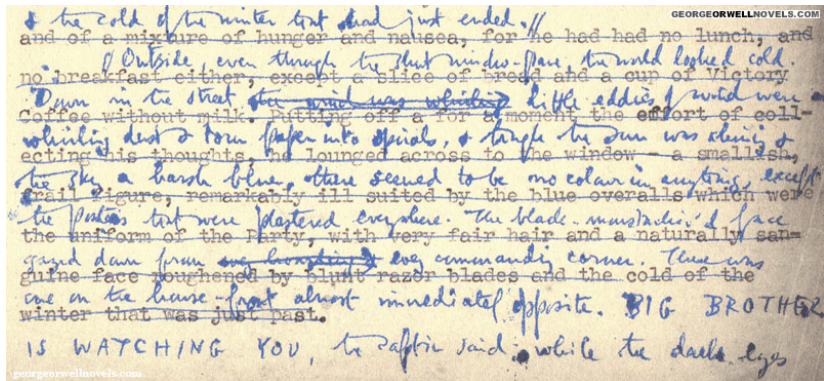 GEORGEORWELLNOVELS.COM
& the cold of the winter that had just ended.//
and of a mixture of hunger and nausea, for he had had no lunch, and
Outside, even through the shut window-pane, the world looked cold.
no breakfast either, except a slice of bread and a cup of Victory
Down in the street the wind was whirling little eddies of wind were
Coffee without milk. Putting off a for a moment the effort of coll-
whirling dust & torn paper into spirals, & though the sun was shining &
ecting his thoughts, he lounged across to the window — a smallish,
the sky a harsh blue, there seemed to be no colour in anything except
frail figure, remarkably ill suited by the blue overalls which were
the posters that were plastered everywhere. The black-mustachio'd face
the uniform of the Party, with very fair hair and a naturally san-
gazed down from every commanding corner. There was
guine face roughened by blunt razor blades and the cold of the
one on the house-front almost immediately opposite. BIG BROTHER
winter that was just past.
IS WATCHING YOU, the caption said, while the dark eyes
georgeorwellnovels.com